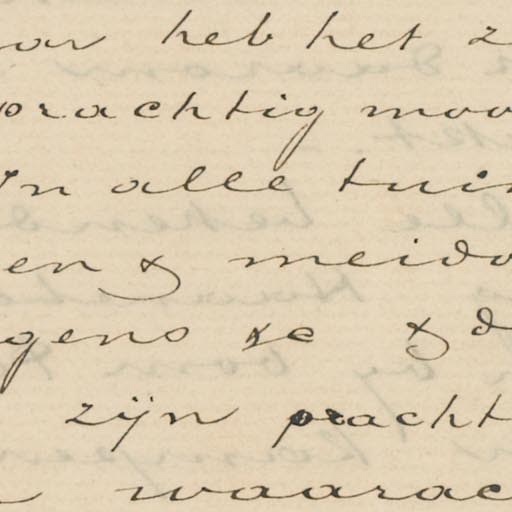 heb het z
prachtig moo
In alle tuin
en & meido
gens &c & d
zijn pracht
waarac